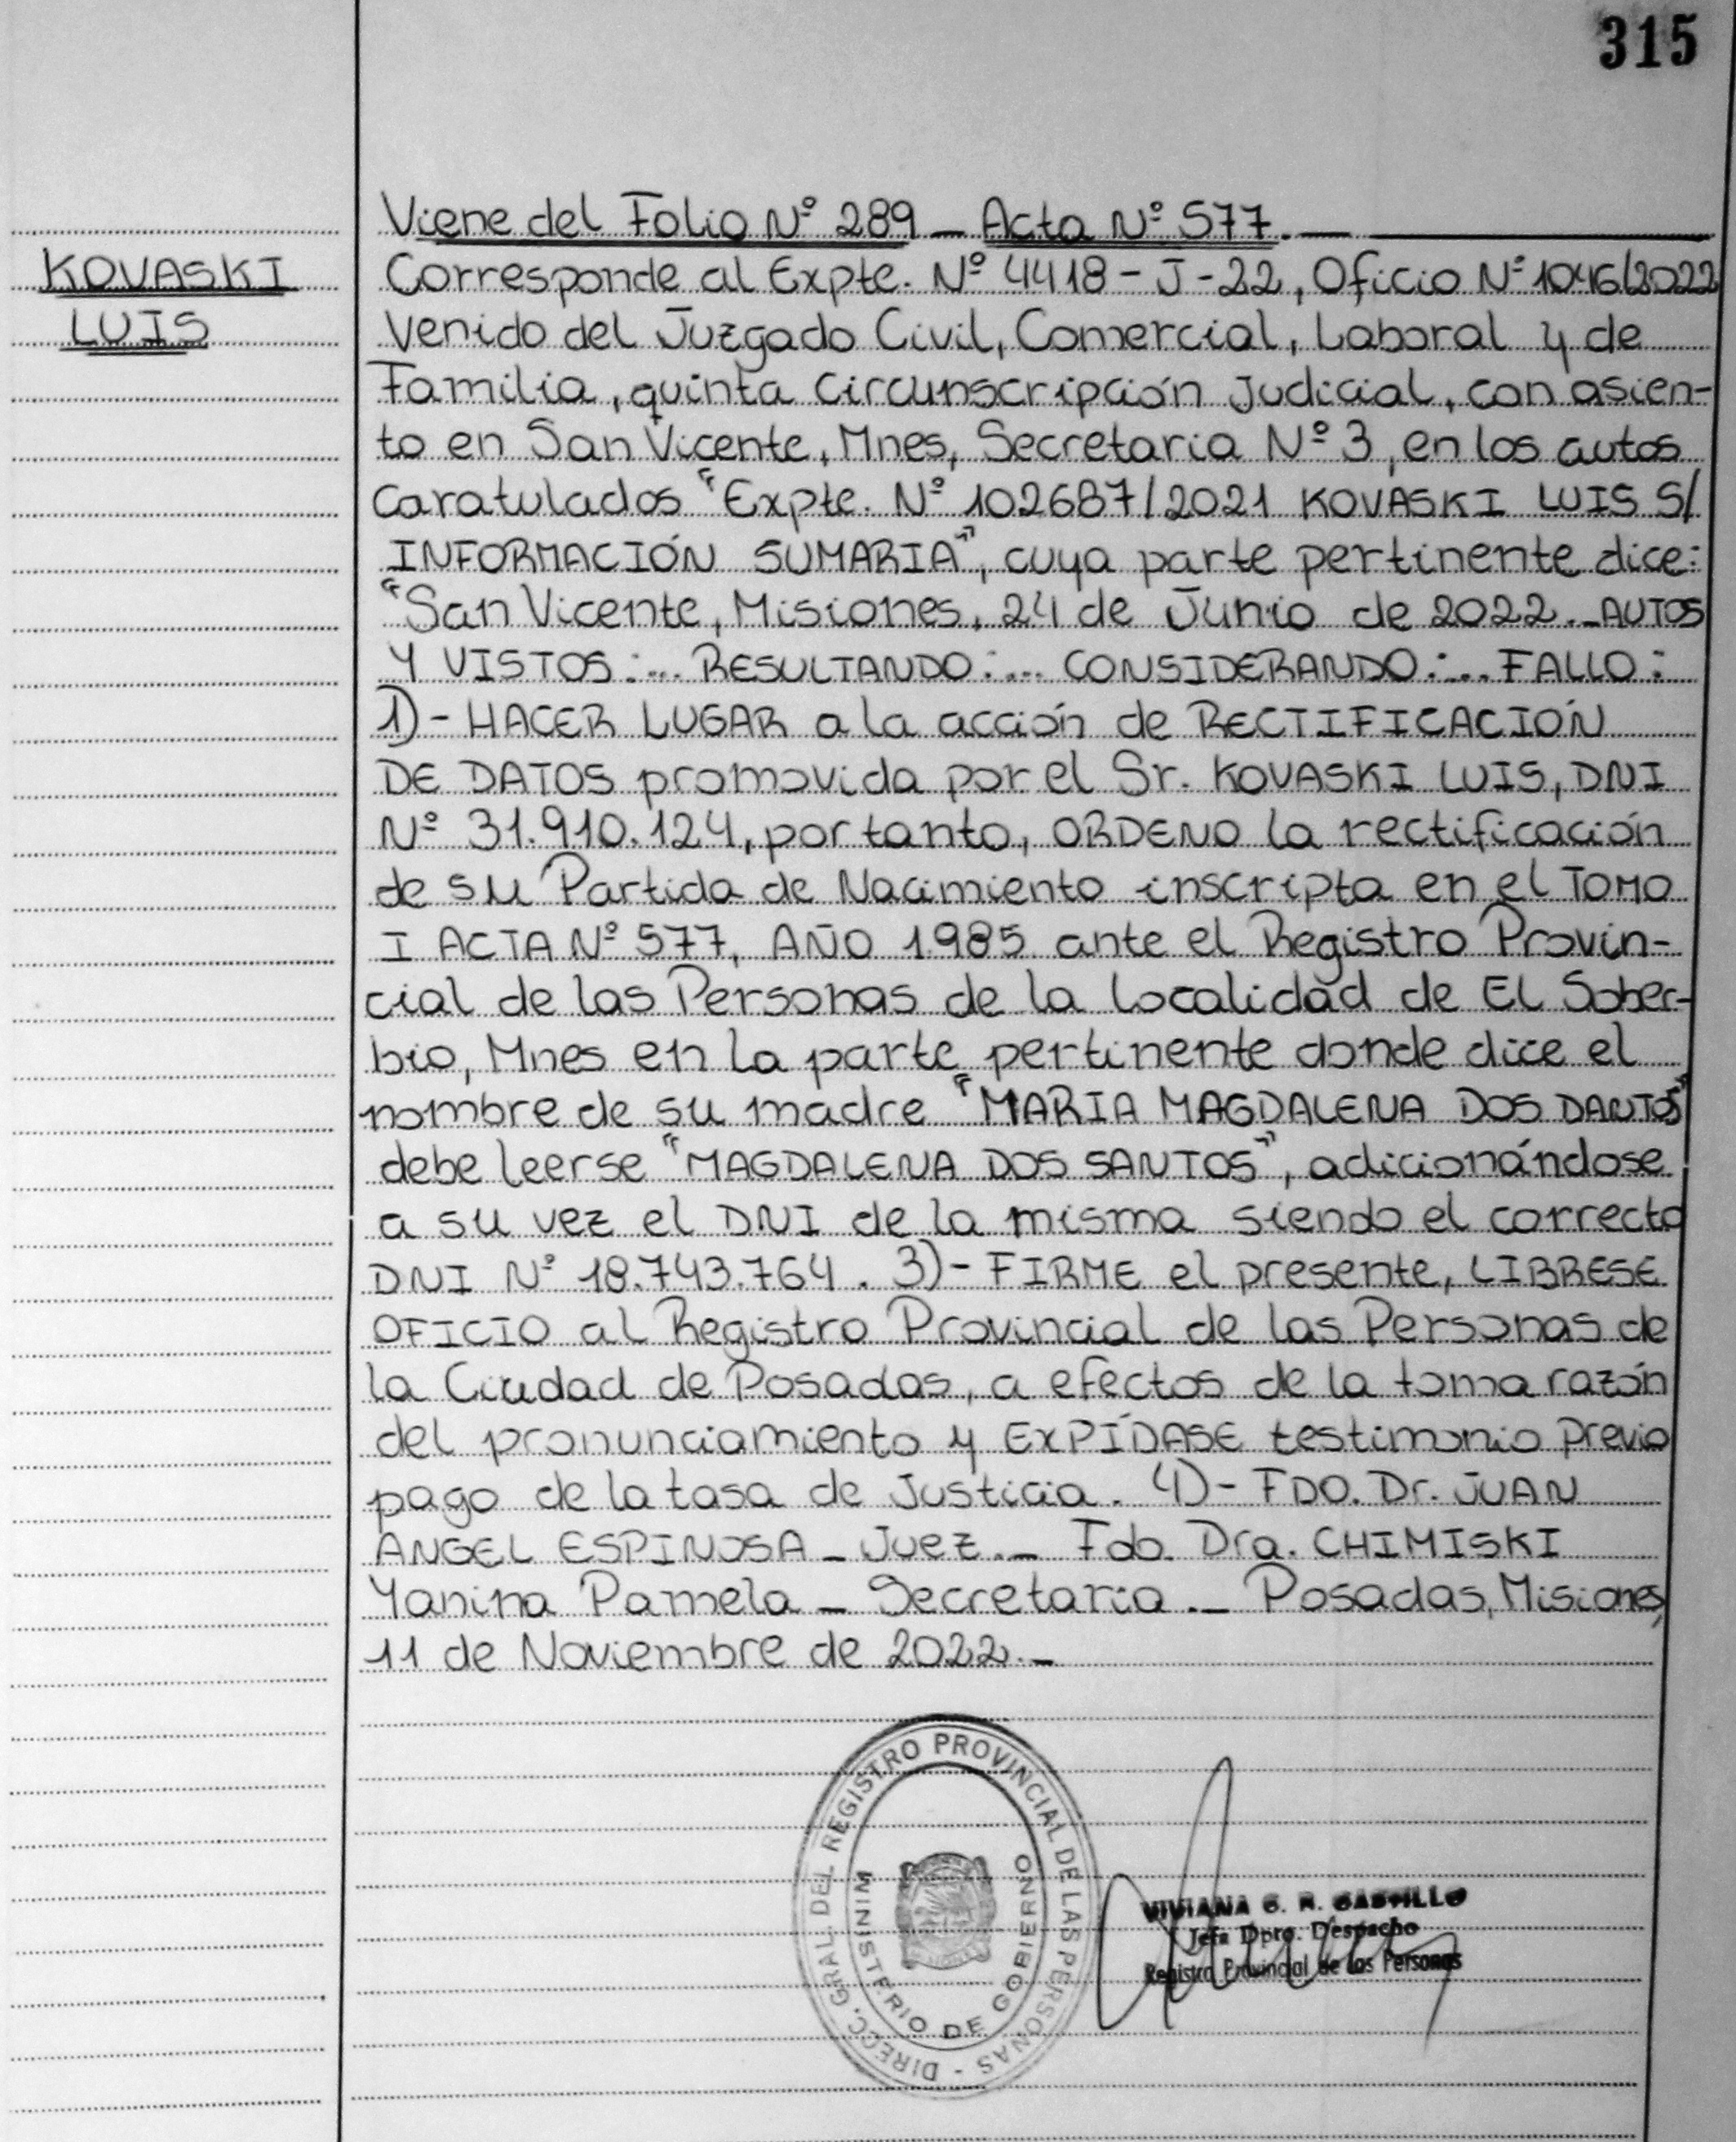 315
Viene del Folio Nº 289 _ Acta Nº 577._
KOVASKI
LUIS
Corresponde al Expte. Nº 4418 - J - 22, Oficio Nº 1046/2022
Venido del Juzgado Civil, Comercial, Laboral y de
Familia, quinta Circunscripción Judicial, con asien-
to en San Vicente, Mnes, Secretaria Nº 3, en los autos
caratulados "Expte. Nº 102687/2021 KOVASKI LUIS S/
INFORMACIÓN SUMARIA", cuya parte pertinente dice:
"San Vicente, Misiones, 24 de Junio de 2022._AUTOS
Y VISTOS:... RESULTANDO:... CONSIDERANDO:... FALLO:
1)- HACER LUGAR a la acción de RECTIFICACIÓN
DE DATOS promovida por el Sr. KOVASKI LUIS, DNI
Nº 31.910.124, por tanto, ORDENO la rectificación
de su Partida de Nacimiento inscripta en el TOMO
I ACTA Nº 577, AÑO 1.985 ante el Registro Provin-
cial de las Personas de la localidad de El Sober-
bio, Mnes en la parte pertinente donde dice el
nombre de su madre "MARIA MAGDALENA DOS DANTOS"
debe leerse "MAGDALENA DOS SANTOS", adicionándose
a su vez el DNI de la misma siendo el correcto
DNI Nº 18.743.764. 3)- FIRME el presente, LIBRESE
OFICIO al Registro Provincial de las Personas de
la Ciudad de Posadas, a efectos de la toma razón
del pronunciamiento y EXPÍDASE testimonio previo
pago de la tasa de Justicia. 4)- FDO. Dr. JUAN
ANGEL ESPINOSA _ Juez._ Fdo. Dra. CHIMISKI
Yanina Pamela _ Secretaria._ Posadas, Misiones,
11 de Noviembre de 2022._
DIRECC. GRAL. DEL REGISTRO PROVINCIAL DE LAS PERSONAS -
MINISTERIO DE GOBIERNO
VIVIANA G. R. CASTILLO
Jefa Dpto. Despacho
Registro Provincial de las Personas